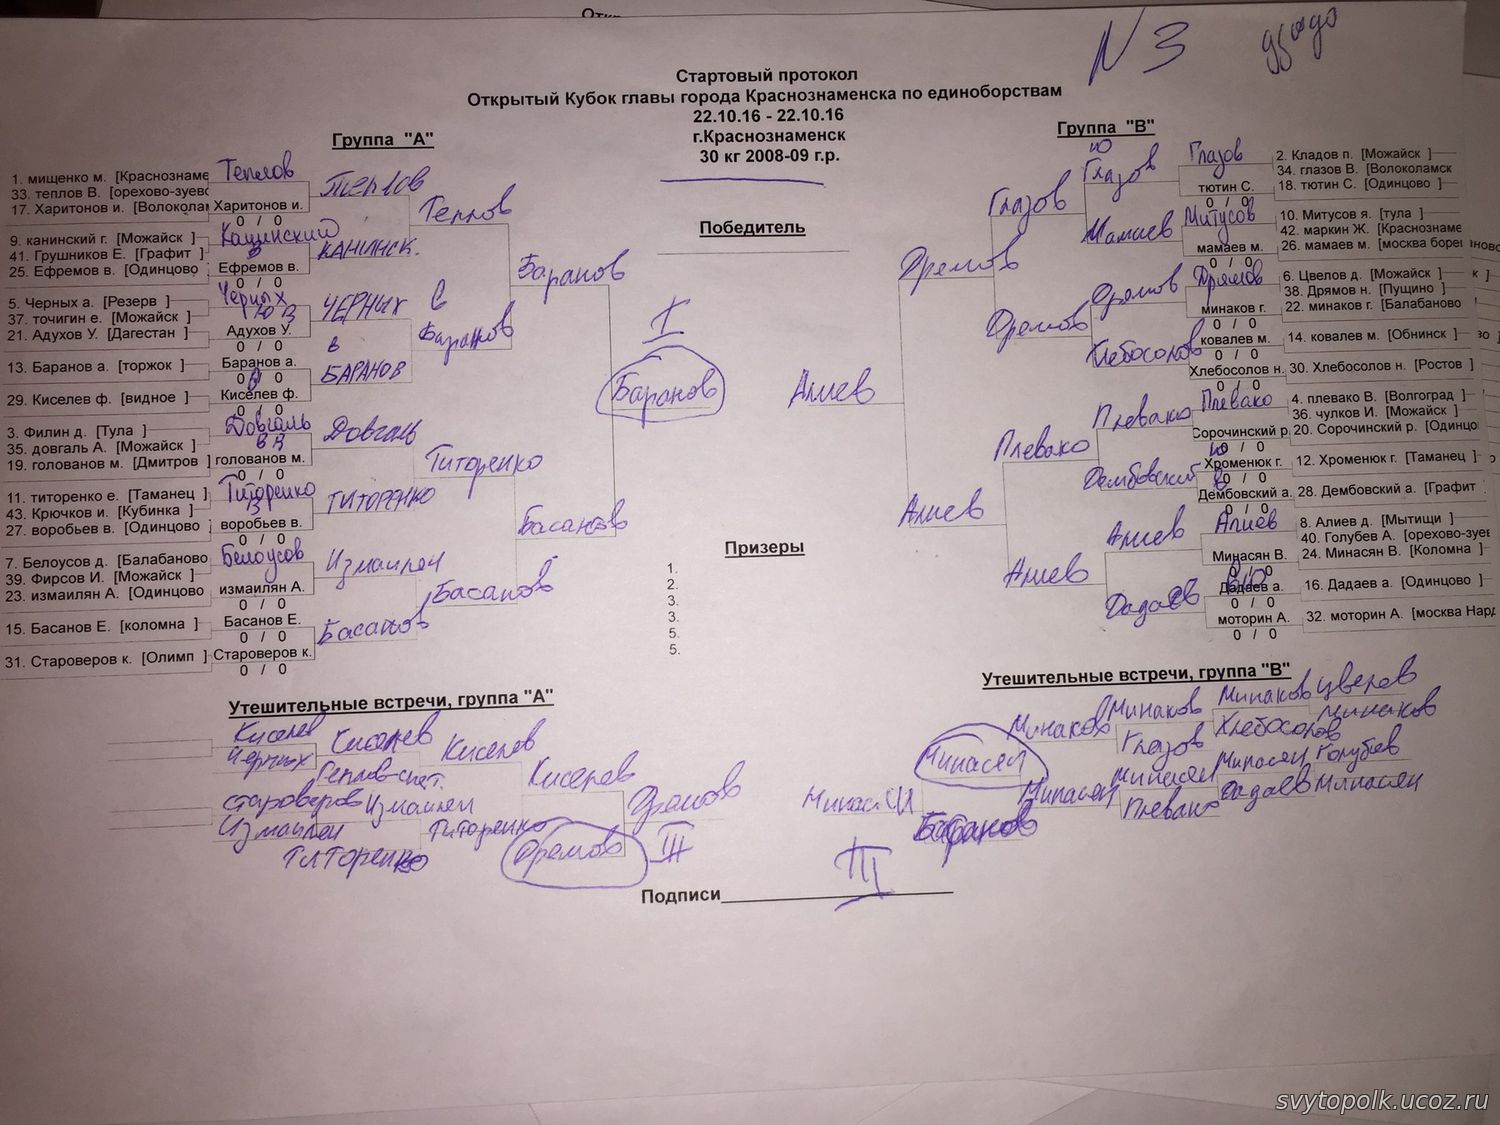 N 3
Стартовый протокол
Открытый Кубок главы города Краснознаменска по единоборствам
22.10.16 - 22.10.16
г.Краснознаменск
30 кг 2008-09 г.р.
Группа "А"
1. мищенко м. [Краснознаме
33. теплов В. [орехово-зуево
17. Харитонов и. [Волоколам
9. канинский г. [Можайск ]
41. Грушников Е. [Графит ]
25. Ефремов в. [Одинцово
5. Черных а. [Резерв ]
37. точигин е. [Можайск ]
21. Адухов У. [Дагестан ]
13. Баранов а. [торжок ]
29. Киселев ф. [видное ]
3. Филин д. [Тула ]
35. довгаль А. [Можайск ]
19. голованов м. [Дмитров ]
11. титоренко е. [Таманец ]
43. Крючков и. [Кубинка ]
27. воробьев в. [Одинцово
7. Белоусов д. [Балабаново
39. Фирсов И. [Можайск ]
23. измаилян А. [Одинцово
15. Басанов Е. [коломна ]
31. Староверов к. [Олимп ]
Теплов
Харитонов и.
0 / 0
Канинский
Ефремов в.
0 / 0
Черных
Адухов У.
0 / 0
Баранов а.
0 / 0
Киселев ф.
0 / 0
Довгаль
голованов м.
0 / 0
Титоренко
воробьев в.
0 / 0
Белоусов
измаилян А.
0 / 0
Басанов Е.
0 / 0
Староверов к.
0 / 0
Теплов
КАНИНСК.
ЧЕРНЫХ
БАРАНОВ
Довгаль
ТИТОРЕНКО
Измаилен
Басанов
Теплов
Баранов
Титоренко
Басанов
Баранов
Басанов
I
Баранов
Победитель
Призеры
1.
2.
3.
3.
5.
5.
Группа "В"
Алиев
Дремов
Алиев
Глазов
Дремов
Плевако
Алиев
Глазов
Мамаев
Дремов
Хлебосолов
Плевако
Дембовский
Алиев
Дадаев
Глазов
тютин С.
0 / 0
Митусов
мамаев м.
0 / 0
Дрямов
минаков г.
0 / 0
ковалев м.
0 / 0
Хлебосолов н.
0 / 0
Плевако
Сорочинский р
Хроменюк г.
0 / 0
Дембовский а.
0 / 0
Алиев
Минасян В.
0 / 0
Дадаев а.
0 / 0
моторин А.
0 / 0
2. Кладов п. [Можайск ]
34. глазов В. [Волоколамск
18. тютин С. [Одинцово ]
10. Митусов я. [тула ]
42. маркин Ж. [Краснознаме
26. мамаев м. [москва борец
6. Цвелов д. [Можайск ]
38. Дрямов н. [Пущино ]
22. минаков г. [Балабаново
14. ковалев м. [Обнинск ]
30. Хлебосолов н. [Ростов ]
4. плевако В. [Волгоград ]
36. чулков И. [Можайск ]
20. Сорочинский р. [Одинцо
12. Хроменюк г. [Таманец ]
28. Дембовский а. [Графит
8. Алиев д. [Мытищи ]
40. Голубев А. [орехово-зуев
24. Минасян В. [Коломна ]
16. Дадаев а. [Одинцово ]
32. моторин А. [москва Нард
Утешительные встречи, группа "А"
Киселев
Черных
Староверов
Измаилен
Киселев
Теплов
Измаилен
ТИТОРЕНКО
Киселев
Титоренко
Киселев
Дремов
Дремов
III
Утешительные встречи, группа "В"
Минасян
Минасян
Баранов
Минаков
Минасян
Минаков
Глазов
Минасян
Плевако
Минаков
Хлебосолов
Минасян
Дадаев
Цвелов
Минаков
Голубев
Минасян
III
Подписи
svytopolk.ucoz.ru